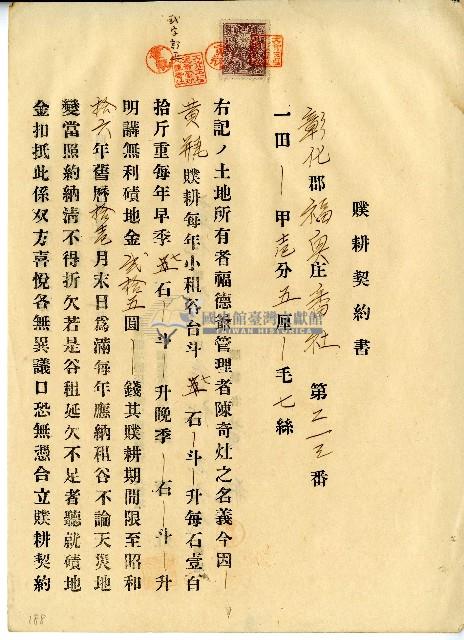 贌耕契約書
彰化郡福興庄番社 第二一三番
一田 ｜ 甲壱分五厘｜毛七絲
右記ノ土地所有者福德爺管理者陳奇灶之名義今因｜
黃 贌耕每年小租谷台斗 石｜斗｜升每石壹百
拾斤重每年早季 石｜斗｜升晚季｜石｜斗｜升
明講無利磧地金貳拾五圓｜｜錢其贌耕期間限至昭和
拾六年舊曆拾壱月末日爲滿每年應納租谷不論天災地
變當照約納清不得折欠若是谷租延欠不足者聽就磧地
金扣抵此係双方喜悅各無異議口恐無憑合立贌耕契約
國史館臺灣文獻館
TAIWAN HISTORICA
188